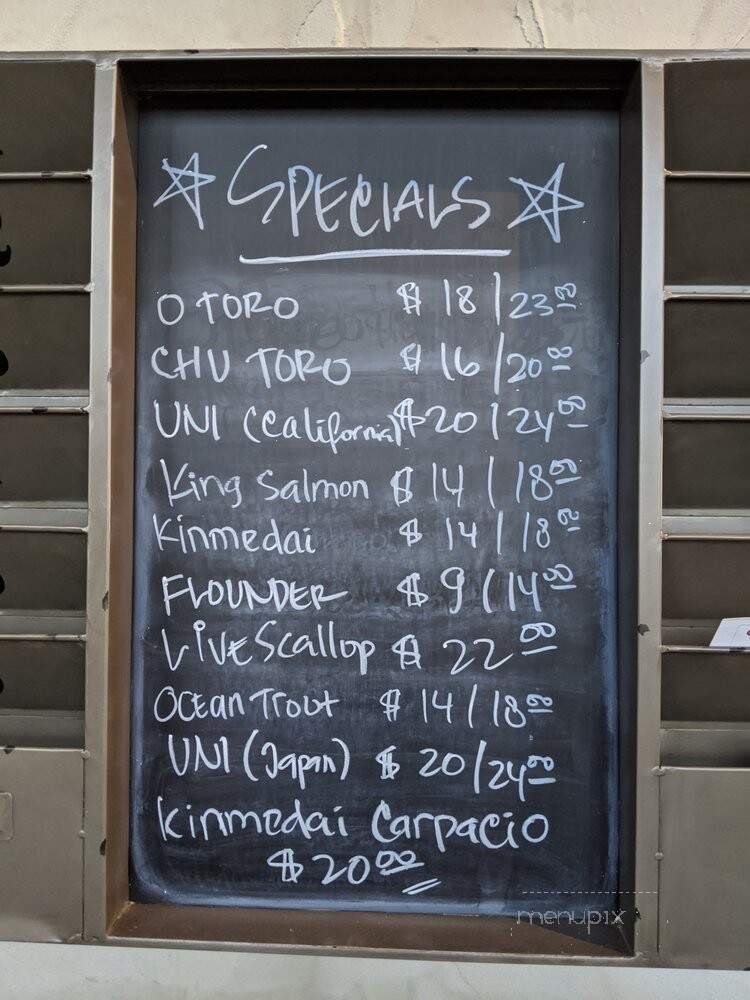 ☆ SPECIALS ☆
O TORO $ 18 / 23
CHU TORO $ 16 / 20
UNI (California) $ 20 / 24
King Salmon $ 14 / 18
Kinmedai $ 14 / 18
FLOUNDER $ 9 / 14 00
LIVE Scallop $ 22
Ocean Trout $ 14 / 18
UNI (Japan) $ 20 / 24
Kinmedai Carpacio
$ 20 00
menupix